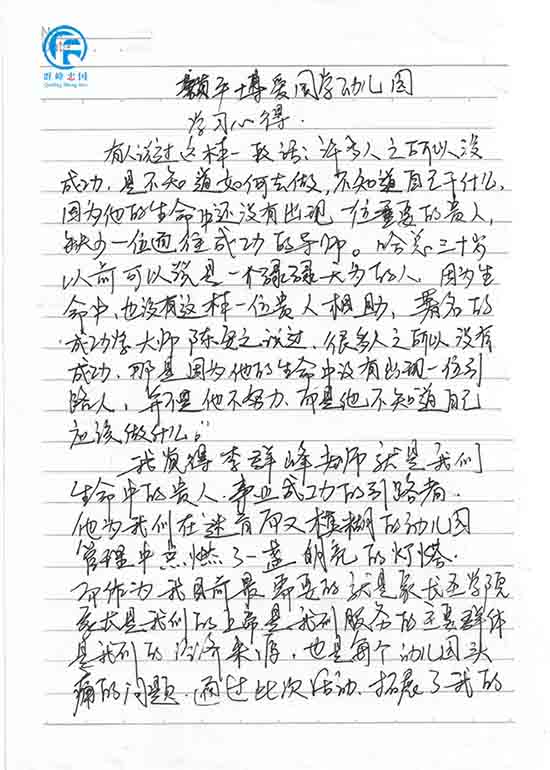 群峰忠国
Qunfeng Zhong Guo
颍平博爱国学幼儿园
学习心得.
有人说过这样一段话: 许多人之所以没
成功, 是不知道如何去做, 不知道自己干什么,
因为他的生命中还没有出现一位重要的贵人,
缺少一位通往成功的导师。 三十岁
以前可以说是一个碌碌无为的人, 因为生
命中, 也没有这样一位贵人相助, 著名的
成功学大师陈安之说过, 很多人之所以没有
成功, 那是因为他的生命中没有出现一位引
路人, 并不是他不努力, 而是他不知道自己
应该做什么。"
我觉得李群峰老师就是我们
生命中的贵人, 事业成功的引路者.
他为我们在迷盲而又模糊的幼儿园
管理中点燃了一盏明亮的灯塔.
而作为我目前最需要的就是家长
家长是我们的上帝是我们服务的主要群体
是我们的经济来源, 也是每个幼儿园头
痛的问题. 通过此次活动, 拓展了我的